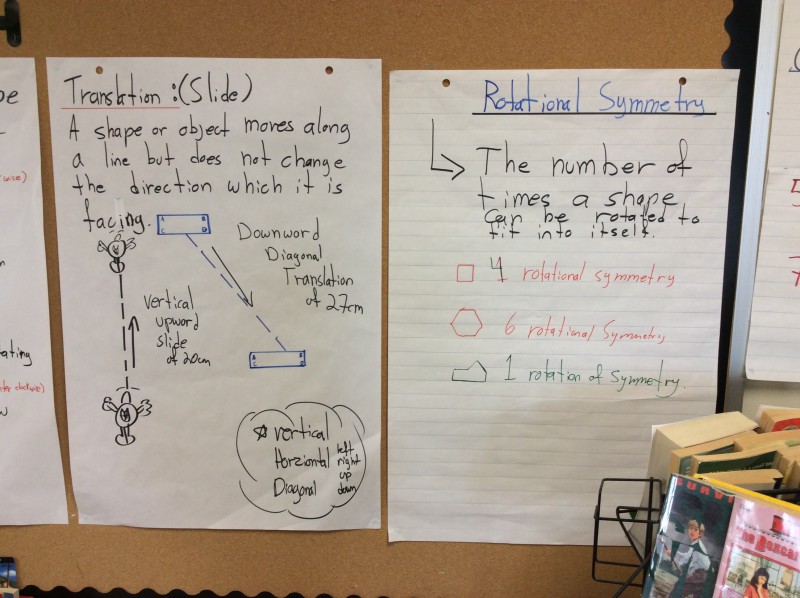 Translation : (Slide)
A shape or object moves along
a line but does not change
the direction which it is
facing.
A B
C D
Downward
Diagonal
Translation
of 27cm
Vertical
upward
slide
of 20cm
A B
C D
vertical
Horziontal
Diagonal
left
right
up
down
Rotational Symmetry
The number of
times a shape
can be rotated to
fit into itself.
4 rotational symmetry
6 rotational Symmetry
1 rotation of Symmetry.